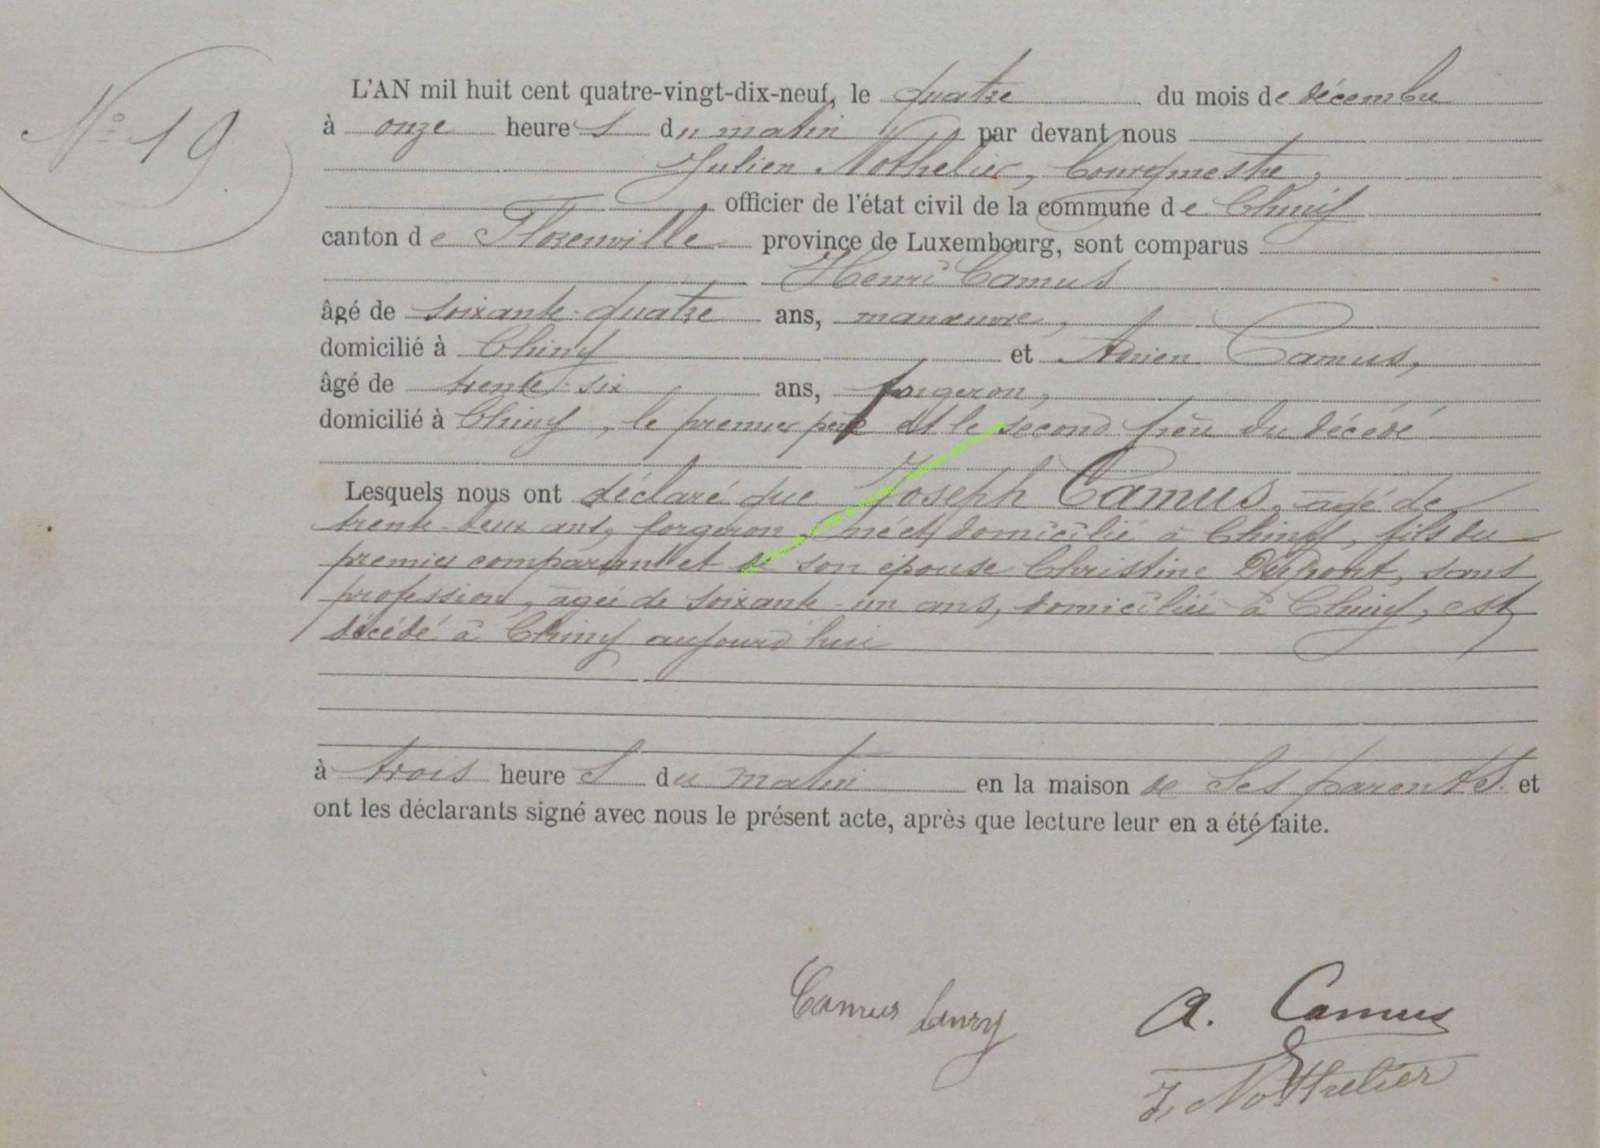 N° 19
L'AN mil huit cent quatre-vingt-dix-neuf, le quatre du mois de décembre
à onze heures du matin par devant nous
Julien Nothelier, bourgmestre,
officier de l'état civil de la commune de Chiny
canton de Florenville province de Luxembourg, sont comparus
Henri Camus
âgé de soixante-quatre ans, manœuvre,
domicilié à Chiny et Adrien Camus,
âgé de trente-six ans, forgeron,
domicilié à Chiny, le premier père et le second frère du décédé
Lesquels nous ont déclaré que Joseph Camus, âgé de
trente-deux ans, forgeron, né et domicilié à Chiny, fils du
premier comparant et de son épouse Christine Dupont, sans
profession, âgée de soixante-un ans, domiciliée à Chiny, est
décédé à Chiny aujourd'hui
à trois heures du matin en la maison de ses parents et
ont les déclarants signé avec nous le présent acte, après que lecture leur en a été faite.
Camus henry A. Camus
J. Nothelier